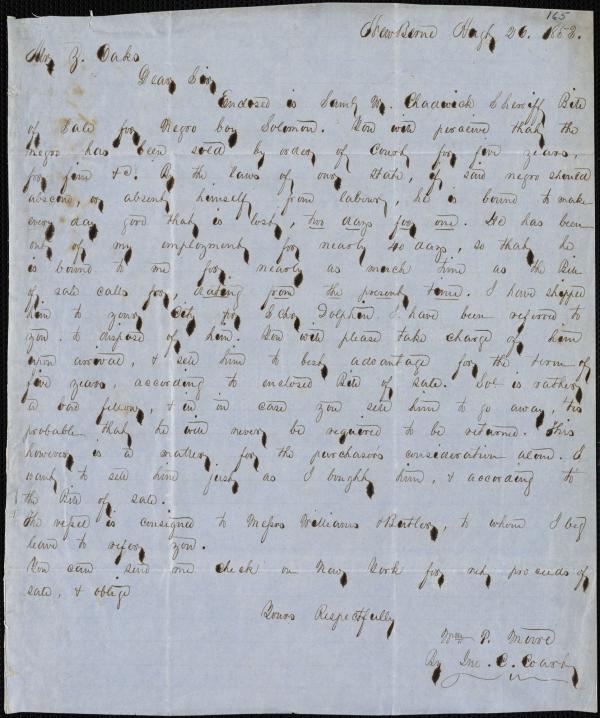 165
New Berne Augt 26. 1853.
Mr Z. Oakes
Dear Sir,
Enclosed is Saml W. Chadwick Sheriff Bill
of Sale for Negro boy Solomon. You will perceive that the
negro has been sold by order of Court for five years,
for fine &c. By the laws of our State, if said negro should
abscond, or absent himself from labour, he is bound to make
every day good that is lost, two days for one. He has been
out of my employment for nearly 40 days, so that he
is bound to me for nearly as much time as the Bill
of sale calls for, dating from the present time. I have shipped
him to your City pr Schr Dolphin. I have been referred to
you to dispose of him. You will please take charge of him
upon arrival, & sell him to best advantage for the term of
five years, according to enclosed Bill of sale. Sol is rather
a bad fellow, & in case you sell him to go away, tis
probable that he will never be required to be returned. This
however is a matter for the purchasers consideration alone. I
want to sell him just as I bought him, & according to
the Bill of sale.
The vessel is consigned to Messrs Williams & Butler, to whom I beg
leave to refer you.
You can send me check on New York for net proceeds of
sale, & oblige
Yours Respectfully
Wm P. Moore
By Jno. C.